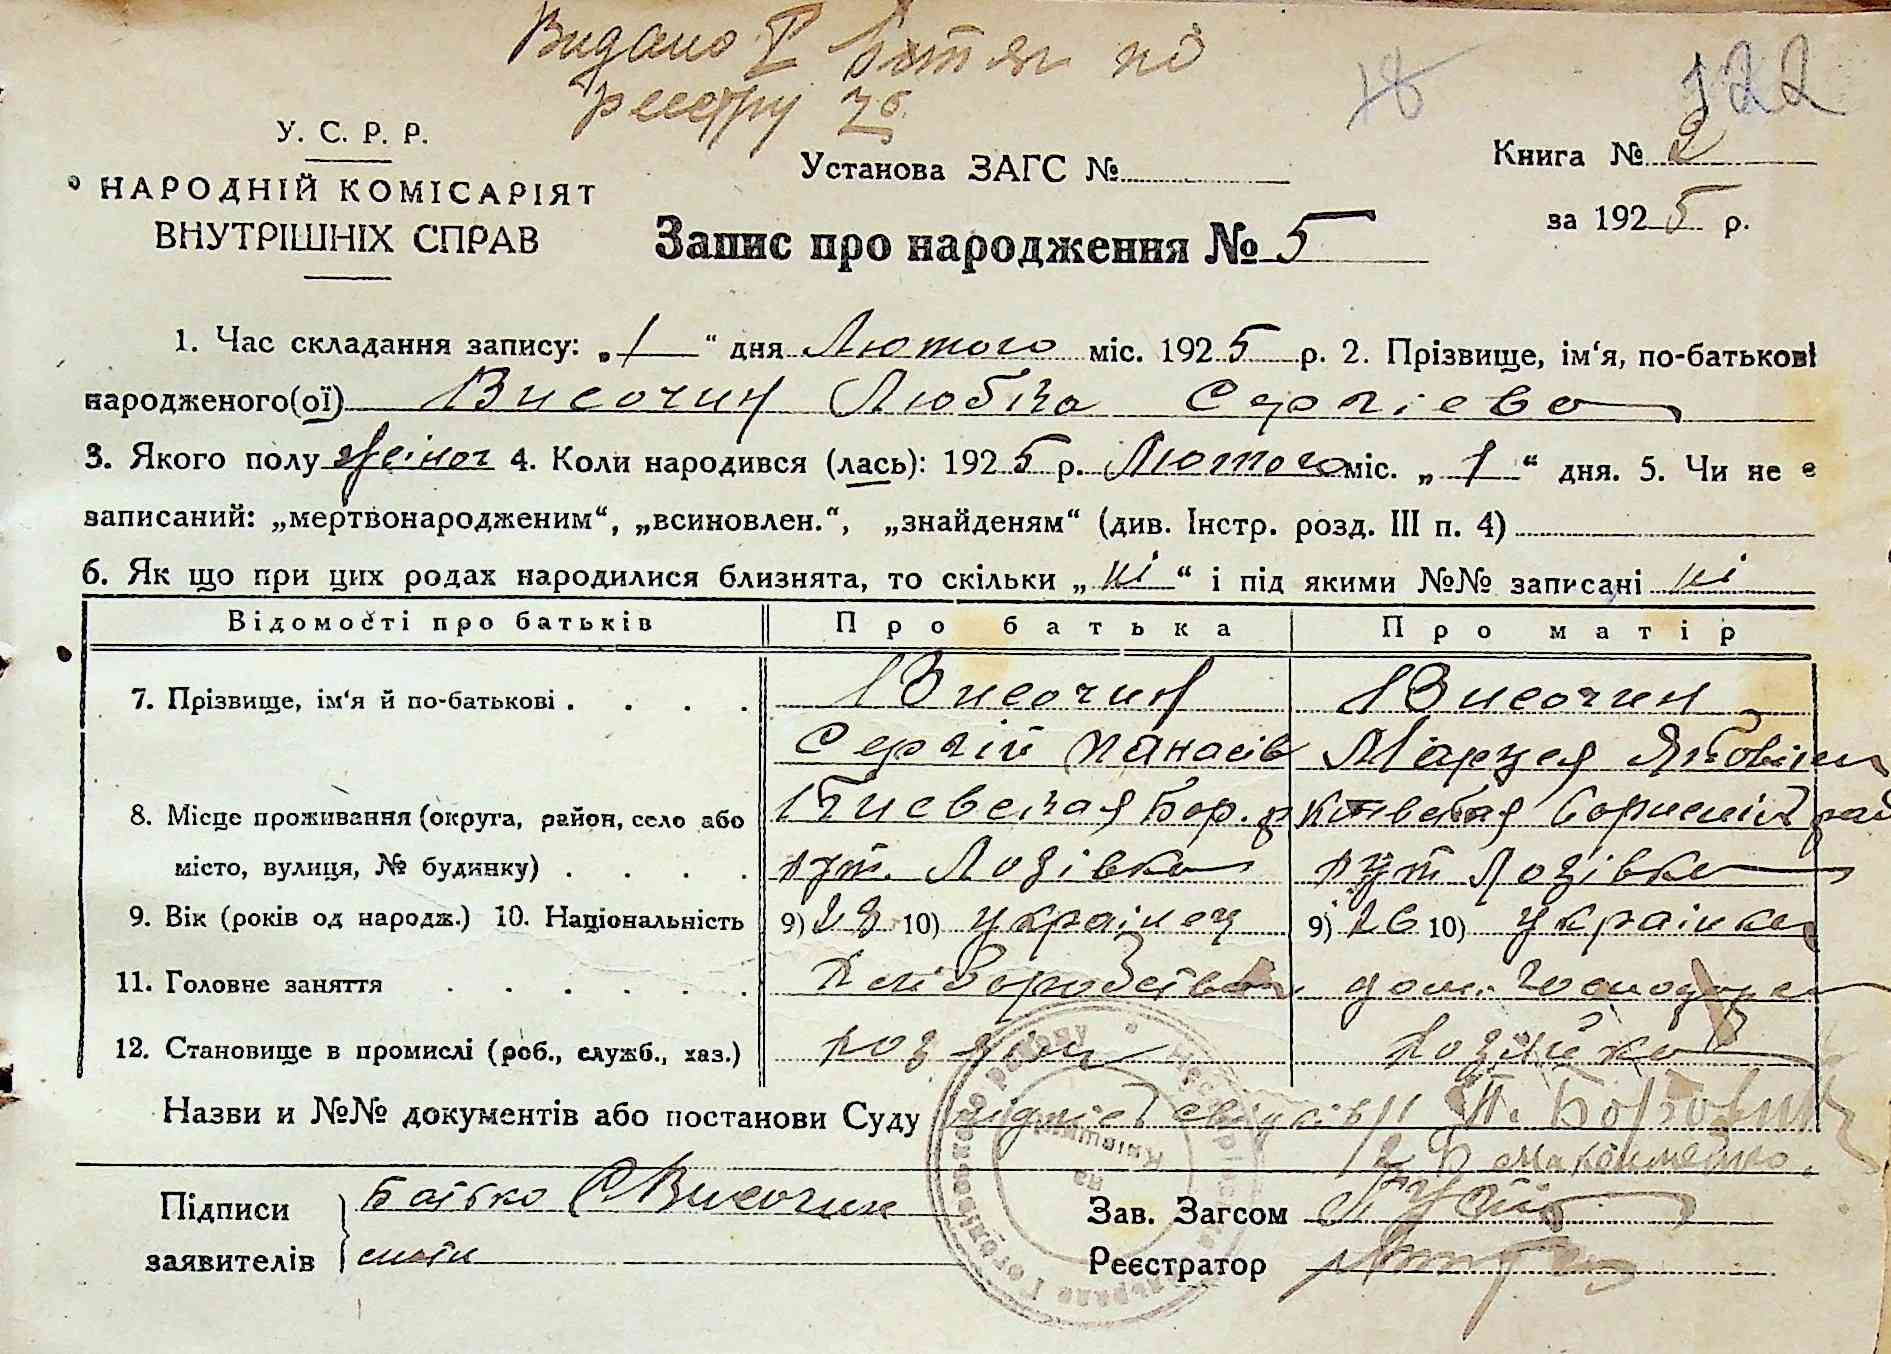 Видано
реєстру
18
122
У. С. Р. Р.
НАРОДНІЙ КОМІСАРІЯТ
ВНУТРІШНІХ СПРАВ
Установа ЗАГС №
Книга № 2
за 1925 р.
Запис про народження № 5
1. Час складання запису: „1“ дня Лютого міс. 1925 р. 2. Прізвище, ім‘я, по-батькові
народженого(ої) Височин Любка Сергіева
3. Якого полу жіноч 4. Коли народився (лась): 1925 р. Лютого міс. „1“ дня. 5. Чи не є
записаний: „мертвонародженим“, „всиновлен.“, „знайденям“ (див. Інстр. розд. III п. 4)
6. Як що при цих родах народилися близнята, то скільки „ні“ і під якими №№ записані ні
Відомості про батьків Про батька Про матір
7. Прізвище, ім‘я й по-батькові . . . . Височин Височин
Сергій Панасів Марцея Яковівн
8. Місце проживання (округа, район, село або Киевская Бор. р
місто, вулиця, № будинку) . . . . хут. Лозівка хут Лозівка
9. Вік (років од народж.) 10. Національність 9) 23 10) українец 9) 26 10) українка
11. Головне заняття . . . . . . Хліборобство дом. Господарка
12. Становище в промислі (роб., служб., хаз.) хозяін хозяйка
Назви и №№ документів або постанови Суду підпис свідків 1/ П.
2/
Підписи Батько С Височин Зав. Загсом
заявителів мати Реєстратор